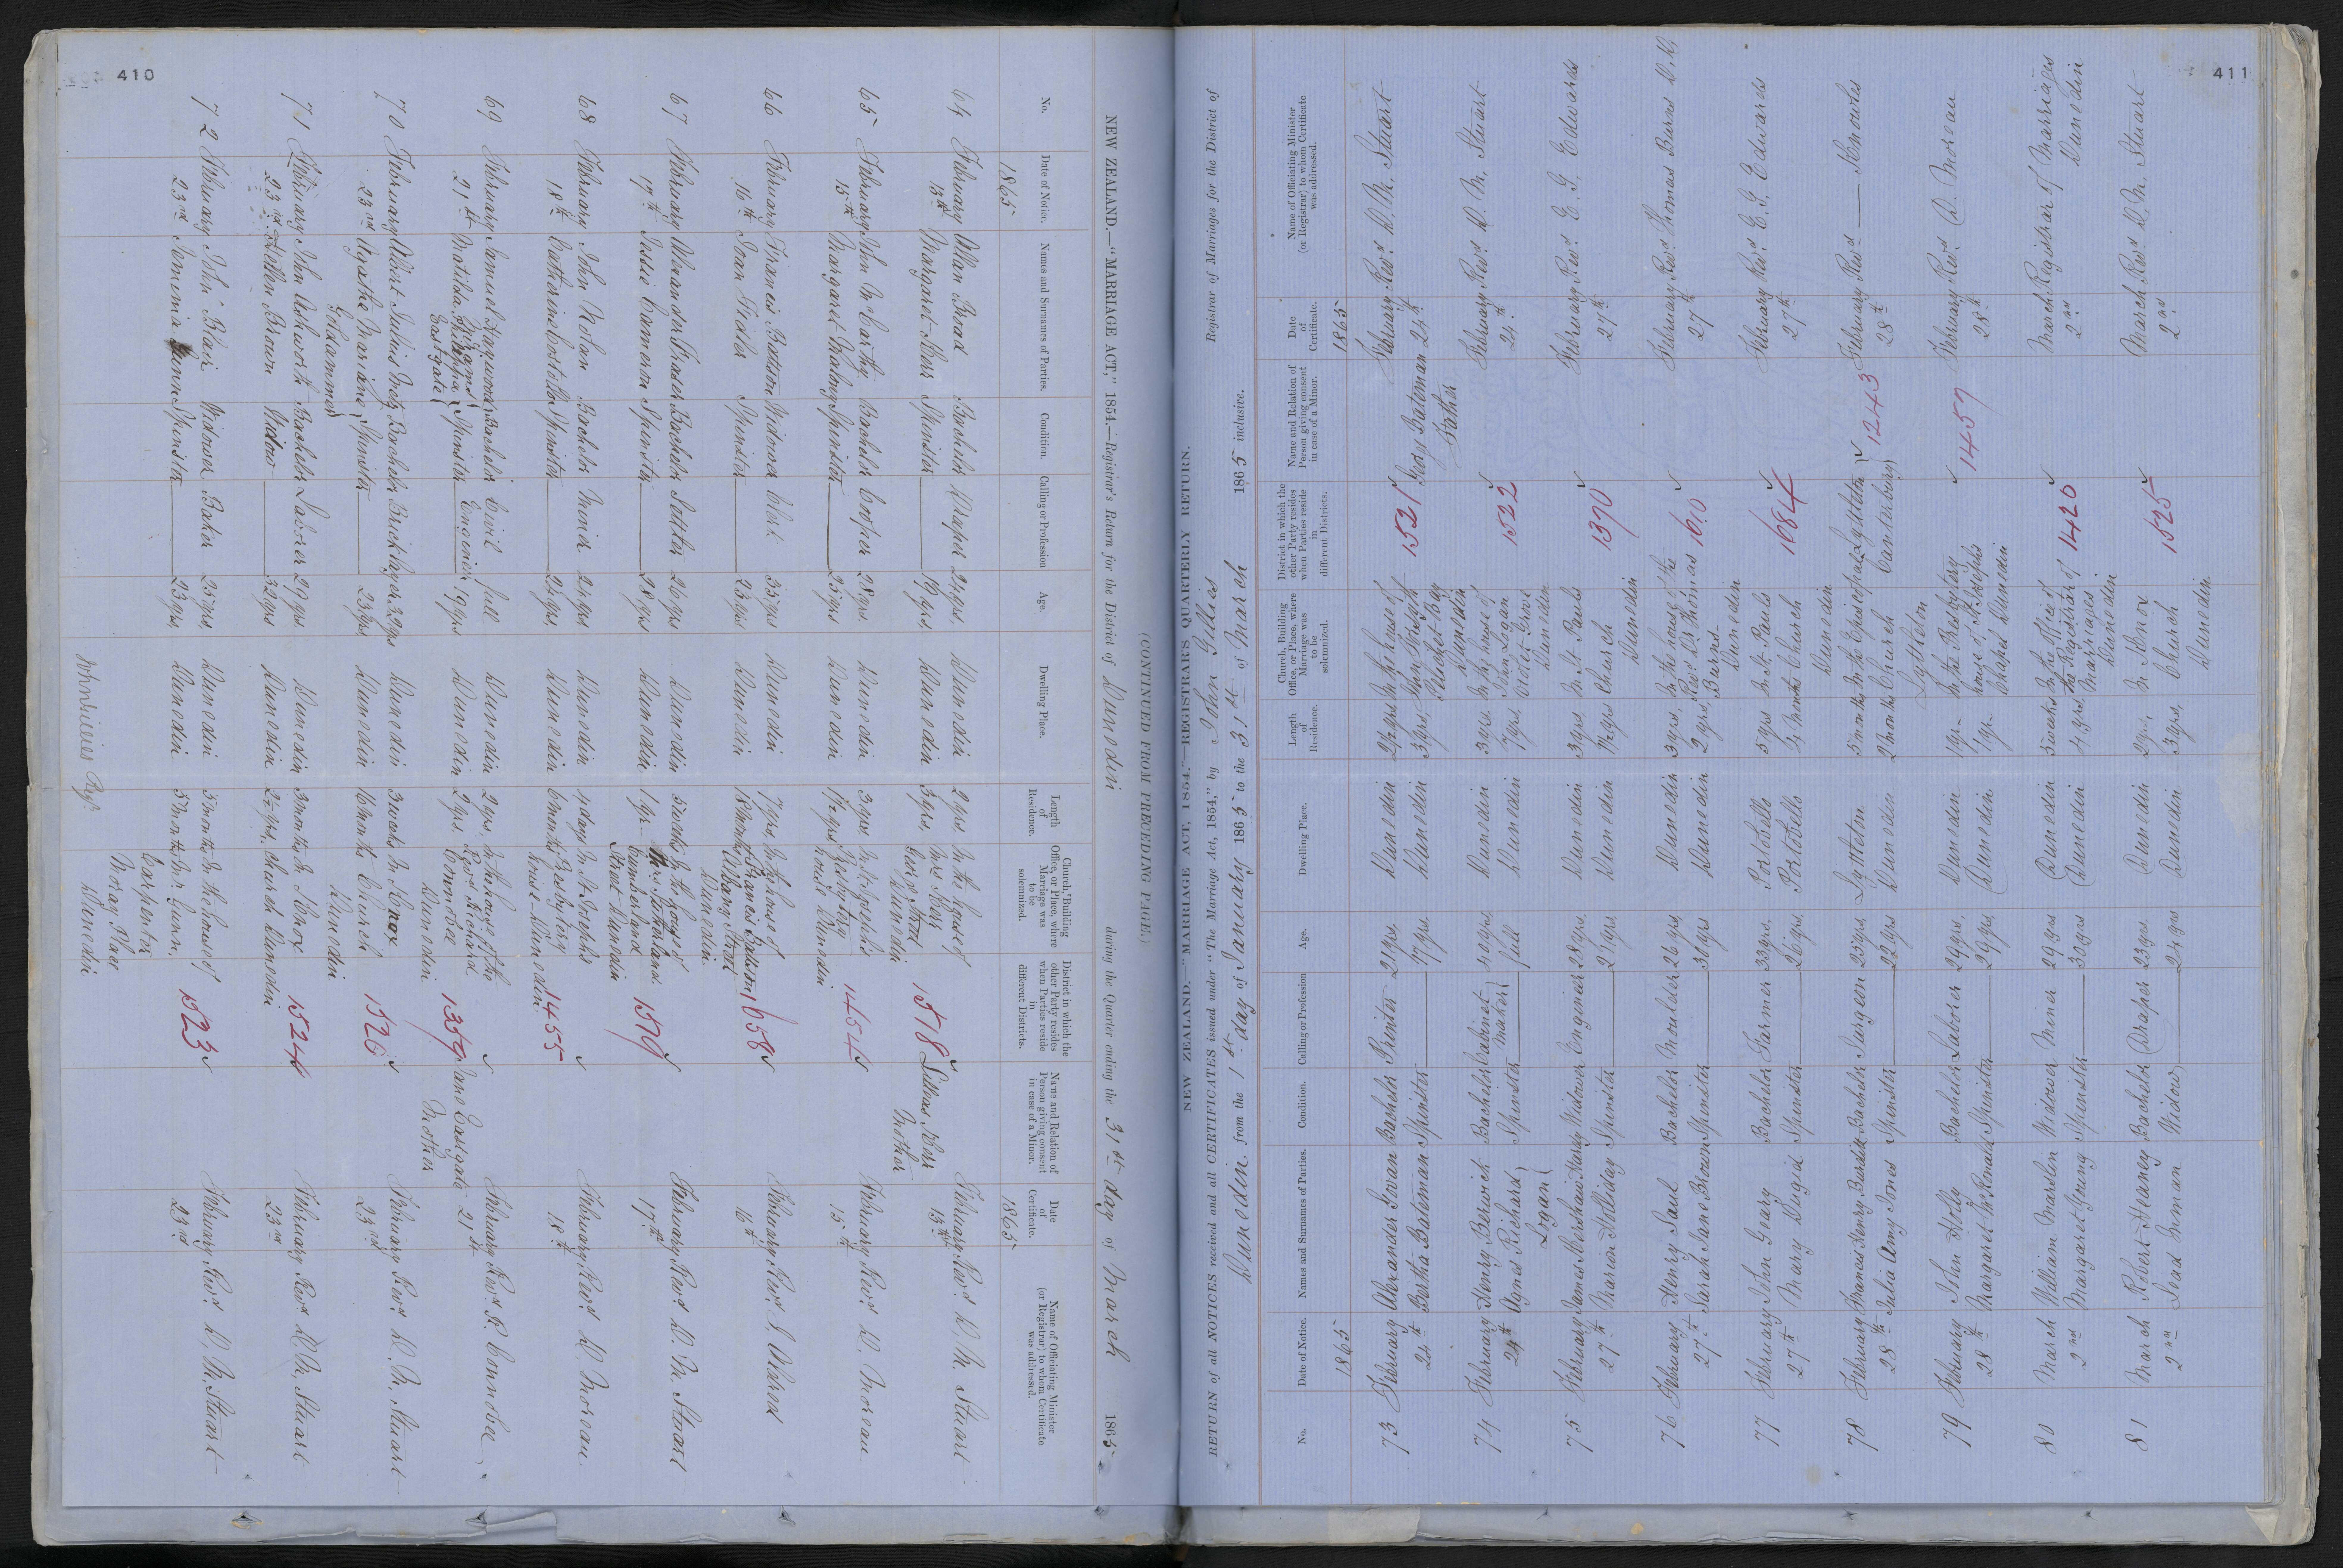 410
NEW ZEALAND.—"MARRIAGE ACT," 1854.—Registrar's Return for the District of Dunedin during the Quarter ending the 31st day of March 1865
(CONTINUED FROM PRECEDING PAGE.)
No. Date of Notice. Names and Surnames of Parties. Condition. Calling or Profession Age. Dwelling Place. Length of Residence. Church, Building Office, or Place, where Marriage was to be solemnized. District in which the other Party resides when Parties reside in different Districts. Name and Relation of Person giving consent in case of a Minor. Date of Certificate. Name of Officiating Minister (or Registrar) to whom Certificate was addressed.
1865 1865
64 February Allan Broad Bachelor Draper 24 yrs. Dunedin 2 yrs. In the house of February Revd. D. M. Stuart
15th Margaret Kerr Spinster 19 yrs Dunedin 3 yrs. Mrs Kerr 1518 Lillias Kerr 15th
Street Dunedin Mother
65 February John McCarthy Bachelor Cooper 28 yrs. Dunedin 3 yrs In St Joseph's 1454 February Revd D. Moreau
15th Margaret Malony Spinster 25 yrs Dunedin 1½ yrs Presbytery 15th
house Dunedin
66 February Francis Battson Widower Clerk 35 yrs Dunedin 7 yrs In the house of February Revd J. Aldred
16th Joan Sidler Spinster 23 yrs Dunedin 18 months Francis Battson 1658 16th
Albany Street
Dunedin
67 February Alexander Fraser Bachelor Settler 26 yrs Dunedin 5 weeks In the house of February Revd D. M. Stuart
17th Julie Cameron Spinster 28 yrs Dunedin 1 yr. Mrs Sutherland 1519 17th
Cumberland
Street Dunedin
68 February John Nolan Bachelor Miner 24 yrs. Dunedin 4 days In St Josephs February Revd D. Moreau
18th Catherine Costello Spinster 24 yrs. Dunedin 6 months Presbytery 1455 18th
house Dunedin
69 February Samuel Haywood Bachelor Civil full Dunedin 2 yrs. In the house of the February Revd R. Connebee
21st Matilda Eastgate Spinster Engineer 19 yrs Dunedin 2 yrs. Revd Richard 1359 Jane Eastgate 21st
Connebee Mother
Dunedin
70 February Albert Julius Metz Bachelor Bricklayer 32 yrs Dunedin 3 weeks In Knox February Revd D. M. Stuart
23rd Agathe Mariane Spinster 23 yrs. Dunedin 16 months Church 1526 23rd
Goldammer Dunedin
71 February John Ashworth Bachelor Laborer 29 yrs. Dunedin 3 months In Knox February Revd D. M. Stuart
23rd Hellen Brown Widow 32 yrs Dunedin 2½ yrs. church Dunedin 1524 23rd
72 February John Blair Widower Baker 25 yrs. Dunedin 3 months In the house of February Revd D. M. Stuart
23rd Jemima Gunn Spinster 23 yrs. Dunedin 5 months Mr. Gunn, 1523 23rd
Carpenter
Moray Place
Dunedin
John Gillies Regr.
411
NEW ZEALAND.—"MARRIAGE ACT, 1854."—REGISTRAR'S QUARTERLY RETURN.
RETURN of all NOTICES received and all CERTIFICATES issued under "The Marriage Act, 1854," by John Gillies Registrar of Marriages for the District of
Dunedin, from the 1st day of January 1865 to the 31st of March 1865 inclusive.
No. Date of Notice. Names and Surnames of Parties. Condition. Calling or Profession Age. Dwelling Place. Length of Residence. Church, Building Office, or Place, where Marriage was to be solemnized. District in which the other Party resides when Parties reside in different Districts. Name and Relation of Person giving consent in case of a Minor. Date of Certificate. Name of Officiating Minister (or Registrar) to whom Certificate was addressed.
1865 1865
73 February Alexander Govan Bachelor Printer 21 yrs, Dunedin 2½ yrs In his house of 1521 George Bateman February Revd. D. M. Stuart
24th Bertha Bateman Spinster 17 yrs. Dunedin 3 yrs, Father 24th
Pelichet Bay
Dunedin
74 February Henry Berwick Bachelor Cabinet 40 yrs, Dunedin 3 yrs. In the house of 1522 February Revd. D. M. Stuart
24th Agnes Richard Spinster Maker full Dunedin 7 yrs, John Logan 24th
Logan Grove
Dunedin
75 February James Kershaw Hardy Widower Engineer 28 yrs, Dunedin 3 yrs In St. Pauls 1370 February Revd. E. G. Edwards
27th Maria Holliday Spinster 21 yrs. Dunedin 1½ yrs Church 27th
Dunedin
76 February Henry Saul Bachelor Moulder 26 yrs, Dunedin 3 yrs, In the house of the 1610 February Revd. Thomas Burns D.D.
27th Sarah Jane Brown Spinster 30 yrs Dunedin 2 yrs, Revd. Dr Thomas 27th
Burns.
Dunedin
77 February John Geary Bachelor Farmer 33 yrs, Portobello 5 yrs In St. Pauls 1684 February Revd. E. G. Edwards
27th Mary Dugid Spinster 26 yrs, Portobello 4 months Church 27th
Dunedin
78 February Francis Henry Burdett Bachelor Surgeon 25 yrs, Lyttelton 5 months In the Episcopal Lyttelton 1243 February Revd —— Knowles
28th Julia Amy Jones Spinster 22 yrs Dunedin 2 months Church Canterbury 28th
Lyttelton
79 February John Holly Bachelor Laborer 29 yrs, Dunedin 1 yr. In the Presbytery 1457 February Revd. D. Moreau
28th Margaret McDonald Spinster 29 yrs, Dunedin 1 yr. house of St Josephs 28th
Chapel Dunedin
80 March William Marslin Widower Miner 29 yrs Dunedin 5 weeks In the Office of 1420 March Registrar of Marriages
2nd Margaret Young Spinster 30 yrs Dunedin 4 yrs, the Registrar of 2nd Dunedin
Marriages
Dunedin
81 March Robert Heaney Bachelor Draper 23 yrs. Dunedin 2 yrs, In Knox 1525 March Revd D. M. Stuart
2nd Inman Widow 24 yrs Dunedin 3 yrs, Church 2nd
Dunedin